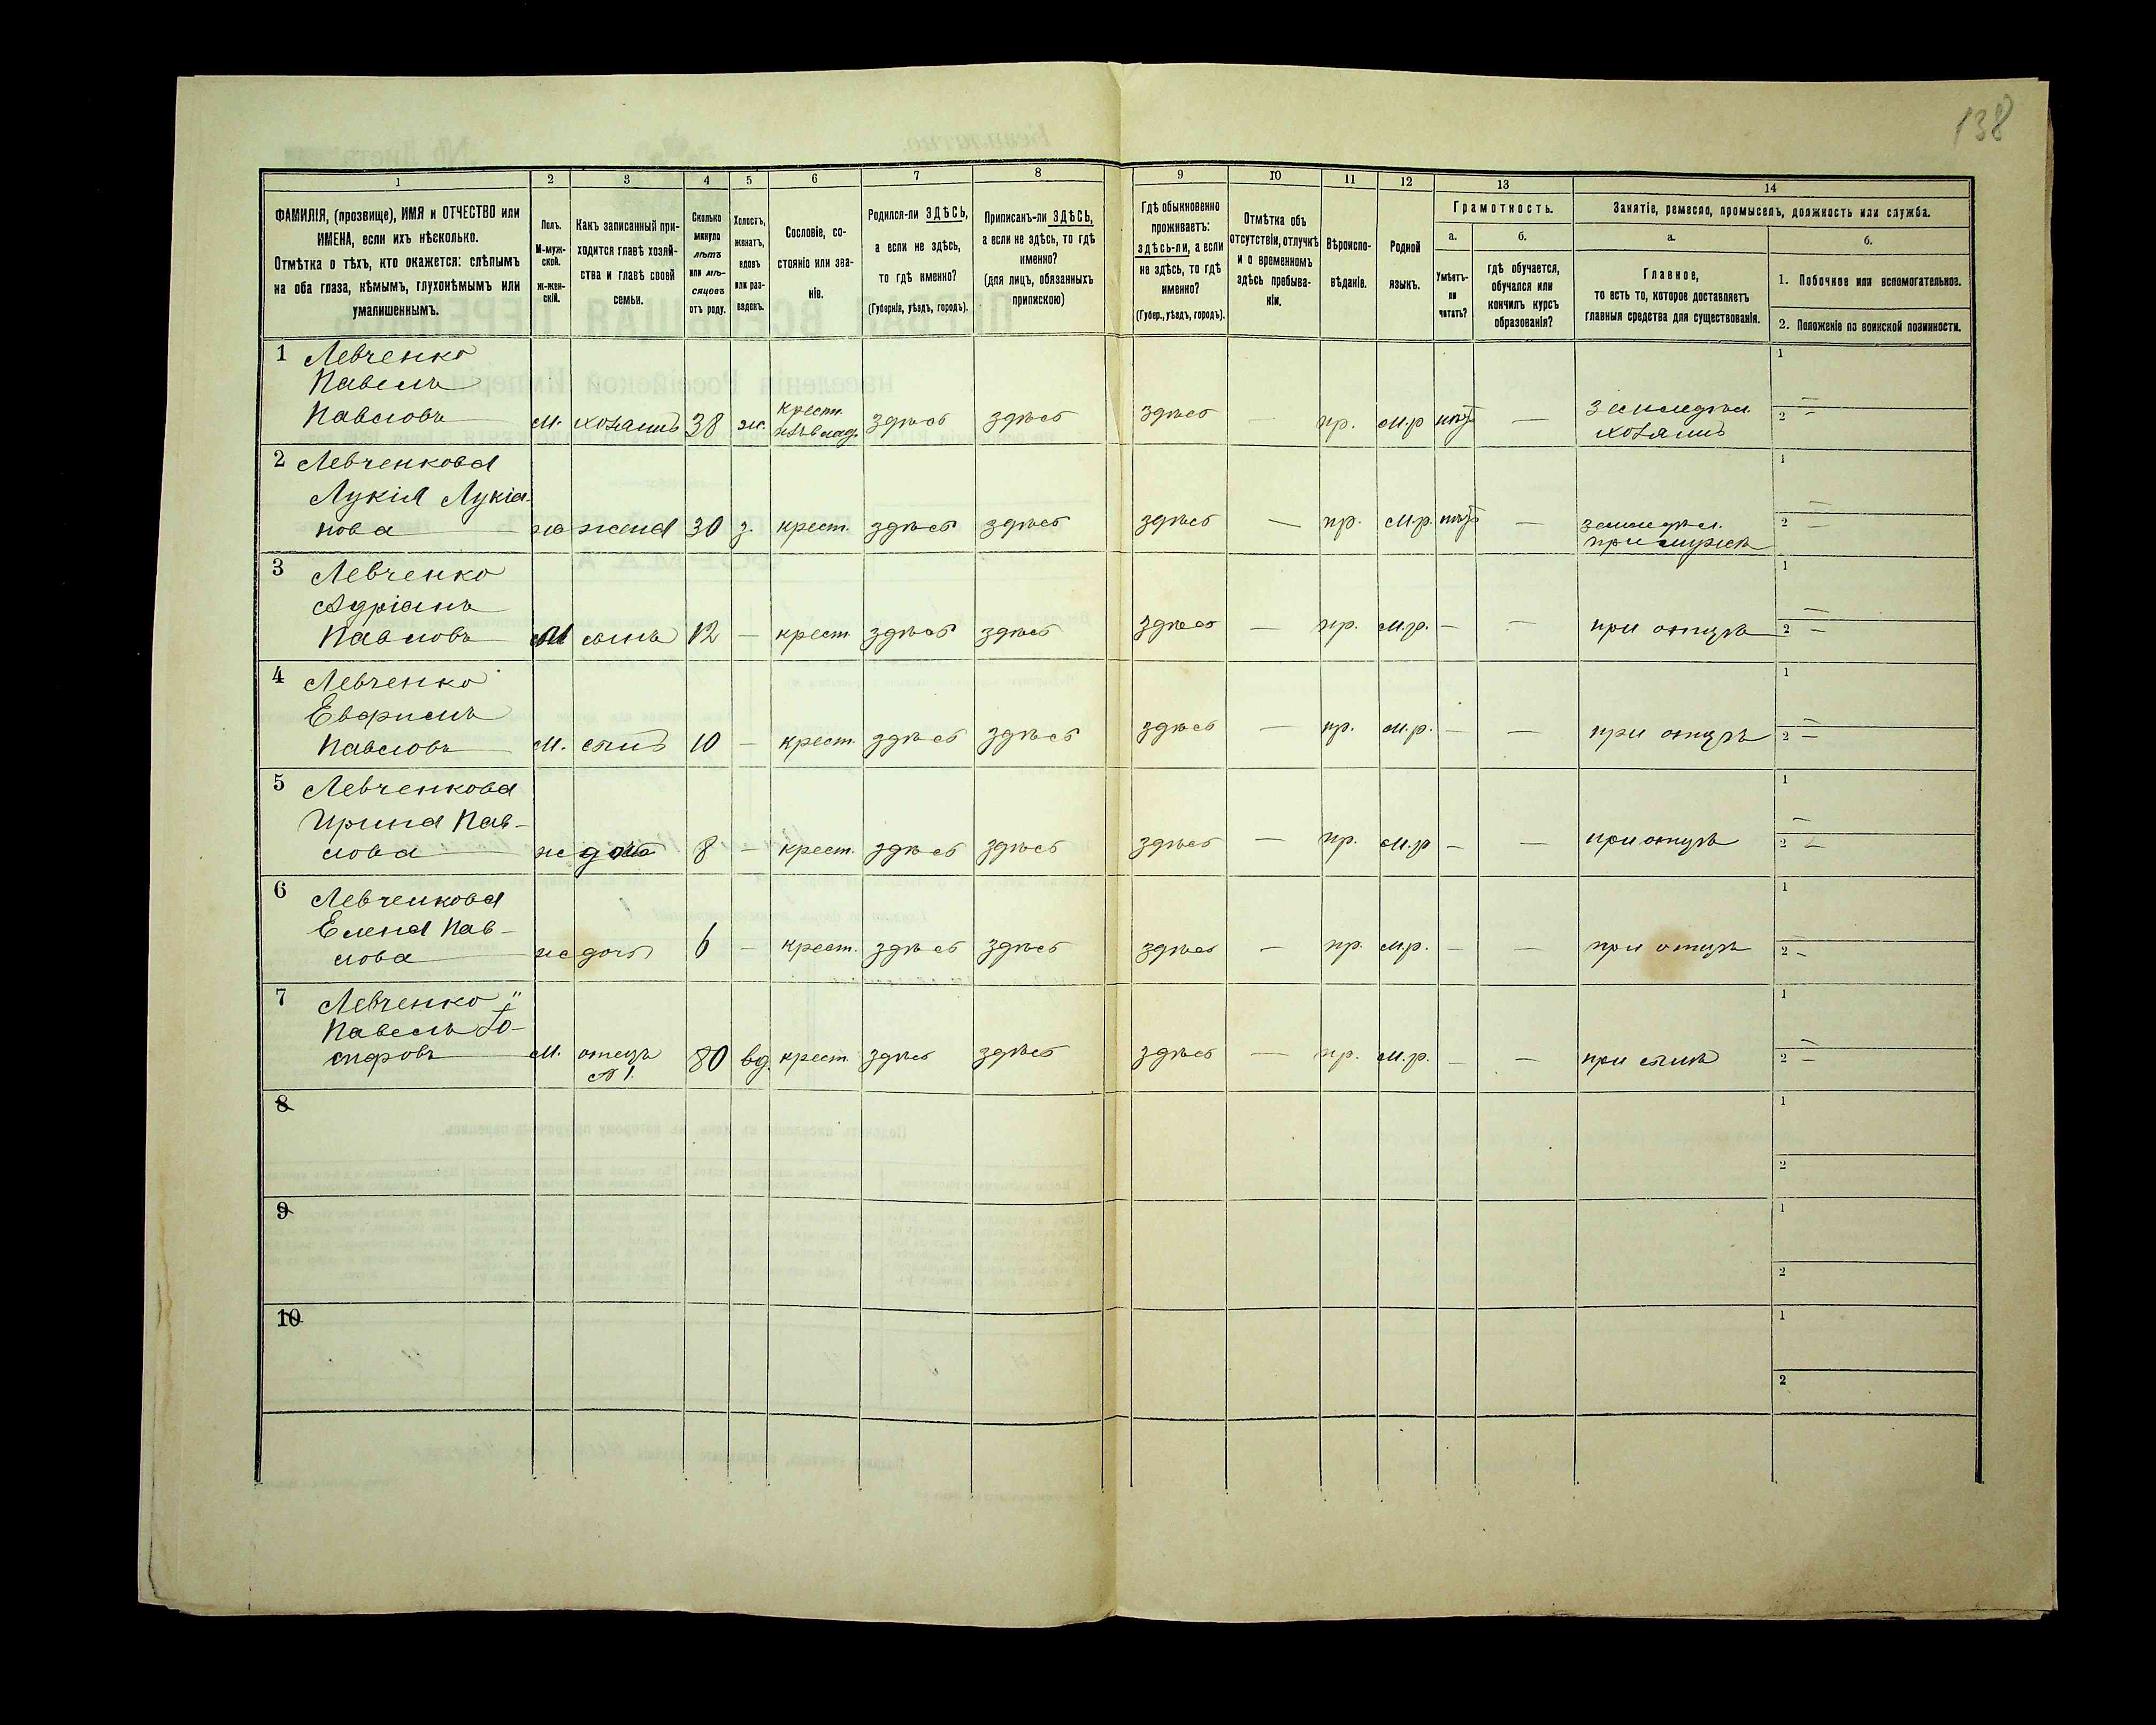 138
1 2 3 4 5 6 7 8 9 10 11 12 13 14
ФАМИЛІЯ, (прозвище), ИМЯ и ОТЧЕСТВО или
ИМЕНА, если ихъ нѣсколько.
Отмѣтка о тѣхъ, кто окажется: слѣпымъ
на оба глаза, нѣмымъ, глухонѣмымъ или
умалишеннымъ.
Полъ.
М-муж-
ской.
ж-жен-
скій.
Какъ записанный при-
ходится главѣ хозяй-
ства и главѣ своей
семьи.
Сколько
минуло
лѣтъ
или мѣ-
сяцовъ
отъ роду.
Холостъ,
женатъ,
вдовъ
или раз-
веденъ.
Сословіе, со-
стояніе или зва-
ніе.
Родился-ли ЗДѢСЬ,
а если не здѣсь,
то гдѣ именно?
(Губернія, уѣздъ, городъ).
Приписанъ-ли ЗДѢСЬ,
а если не здѣсь, то гдѣ
именно?
(для лицъ, обязанныхъ
припискою)
Гдѣ обыкновенно
проживаетъ:
здѣсь-ли, а если
не здѣсь, то гдѣ
именно?
(Губер., уѣздъ, городъ).
Отмѣтка объ
отсутствіи, отлучкѣ
и о временномъ
здѣсь пребыва-
ніи.
Вѣроиспо-
вѣданіе.
Родной
языкъ.
Грамотность.
а.
Умѣетъ-
ли
читать?
б.
гдѣ обучается,
обучался или
кончилъ курсъ
образованія?
Занятіе, ремесло, промыселъ, должность или служба.
а.
Главное,
то есть то, которое доставляетъ
главныя средства для существованія.
б.
1. Побочное или вспомогательное.
2. Положеніе по воинской повинности.
1 Левченко
Павелъ
Павловъ м. хозяинъ 38 ж. крест. из влад. здѣсь здѣсь здѣсь — пр. м.р нѣтъ — земледѣл. хозяинъ 1 — 2 —
2 Левченкова
Лукія Лукіа-
нова ж жена 30 з. крест. здѣсь здѣсь здѣсь — пр. м.р. нѣтъ — земледѣл. при мужѣ 1 — 2 —
3 Левченко
Адріанъ
Павловъ М сынъ 12 — крест. здѣсь здѣсь здѣсь — пр. м.р. — — при отцѣ 1 — 2 —
4 Левченко
Евфимъ
Павловъ м. сынъ 10 — крест. здѣсь здѣсь здѣсь — пр. м.р. — — при отцѣ 1 — 2 —
5 Левченкова
Ирина Пав-
лова ж дочь 8 — крест. здѣсь здѣсь здѣсь — пр. м.р — — при отцѣ 1 — 2 —
6 Левченкова
Елена Пав-
лова ж дочь 6 — крест. здѣсь здѣсь здѣсь — пр. м.р. — — при отцѣ 1 2 —
7 Левченко
Павелъ Іо-
сифовъ м. отецъ № 1. 80 вд. крест. здѣсь здѣсь здѣсь — пр. м.р. — — при сынѣ 1 — 2 —
8 1 2
9 1 2
10 1 2